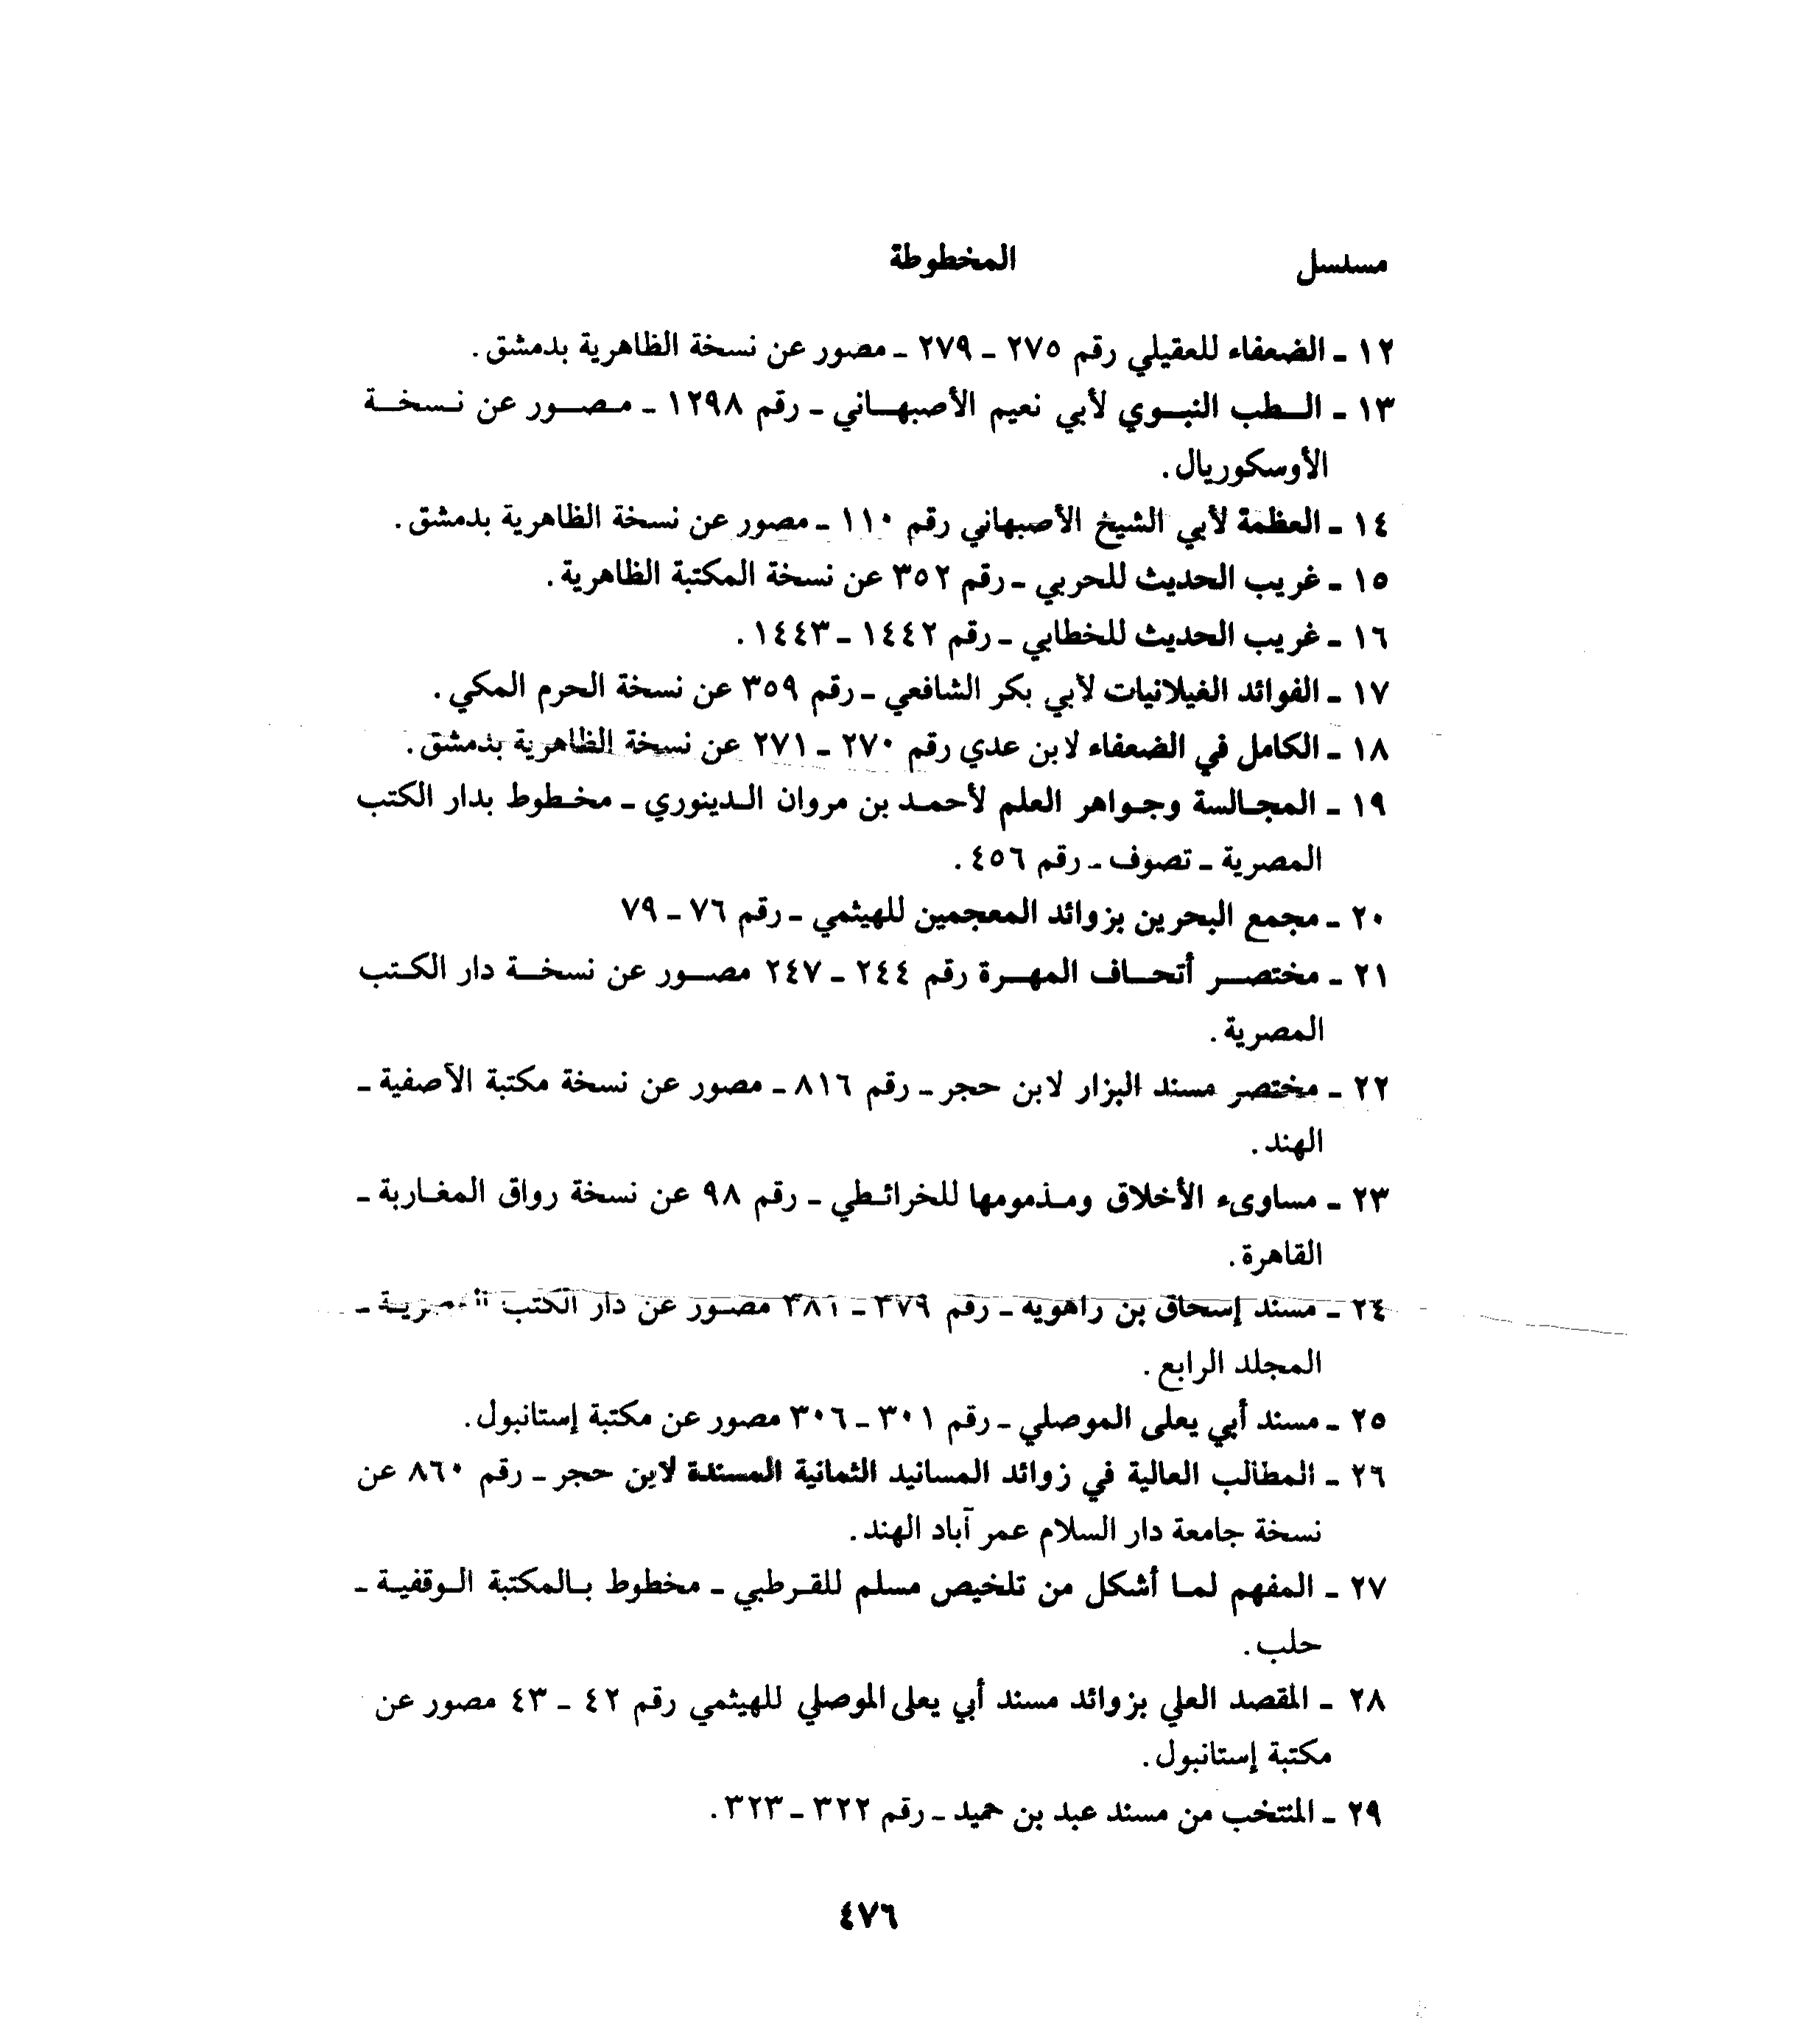 مسلسل المخطوطة
١٢ ـ الضعفاء للعقيلي رقم ٢٧٥ ـ ٢٧٩ ـ مصور عن نسخة الظاهرية بدمشق.
١٣ ـ الطب النبوي لأبي نعيم الأصبهاني ـ رقم ١٢٩٨ ـ مصور عن نسخة
الأوسكوريال.
١٤ ـ العظمة لأبي الشيخ الأصبهاني رقم ١١٠ ـ مصور عن نسخة الظاهرية بدمشق.
١٥ ـ غريب الحديث للحربي ـ رقم ٣٥٢ عن نسخة المكتبة الظاهرية.
١٦ ـ غريب الحديث للخطابي ـ رقم ١٤٤٢ ـ ١٤٤٣.
١٧ ـ الفوائد الغيلانيات لأبي بكر الشافعي ـ رقم ٣٥٩ عن نسخة الحرم المكي.
١٨ ـ الكامل في الضعفاء لابن عدي رقم ٢٧٠ ـ ٢٧١ عن نسخة الظاهرية بدمشق.
١٩ ـ المجالسة وجواهر العلم لأحمد بن مروان الدينوري ـ مخطوط بدار الكتب
المصرية ـ تصوف ـ رقم ٤٥٦.
٢٠ ـ مجمع البحرين بزوائد المعجمين للهيثمي ـ رقم ٧٦ ـ ٧٩
٢١ ـ مختصر أتحاف المهرة رقم ٢٤٤ ـ ٢٤٧ مصور عن نسخة دار الكتب
المصرية.
٢٢ ـ مختصر مسند البزار لابن حجر ـ رقم ٨١٦ ـ مصور عن نسخة مكتبة الآصفية ـ
الهند.
٢٣ ـ مساوىء الأخلاق ومذمومها للخرائطي ـ رقم ٩٨ عن نسخة رواق المغاربة ـ
القاهرة.
٢٤ ـ مسند إسحاق بن راهويه ـ رقم ٣٧٩ ـ ٣٨١ مصور عن دار الكتب المصرية ـ
المجلد الرابع.
٢٥ ـ مسند أبي يعلى الموصلي ـ رقم ٣٠١ ـ ٣٠٦ مصور عن مكتبة إستانبول.
٢٦ ـ المطالب العالية في زوائد المسانيد الثمانية المسندة لابن حجر ـ رقم ٨٦٠ عن
نسخة جامعة دار السلام عمر آباد الهند.
٢٧ ـ المفهم لما أشكل من تلخيص مسلم للقرطبي ـ مخطوط بالمكتبة الوقفية ـ
حلب.
٢٨ ـ المقصد العلي بزوائد مسند أبي يعلى الموصلي للهيثمي رقم ٤٢ ـ ٤٣ مصور عن
مكتبة إستانبول.
٢٩ ـ المنتخب من مسند عبد بن حميد ـ رقم ٣٢٢ ـ ٣٢٣.
٤٧٦